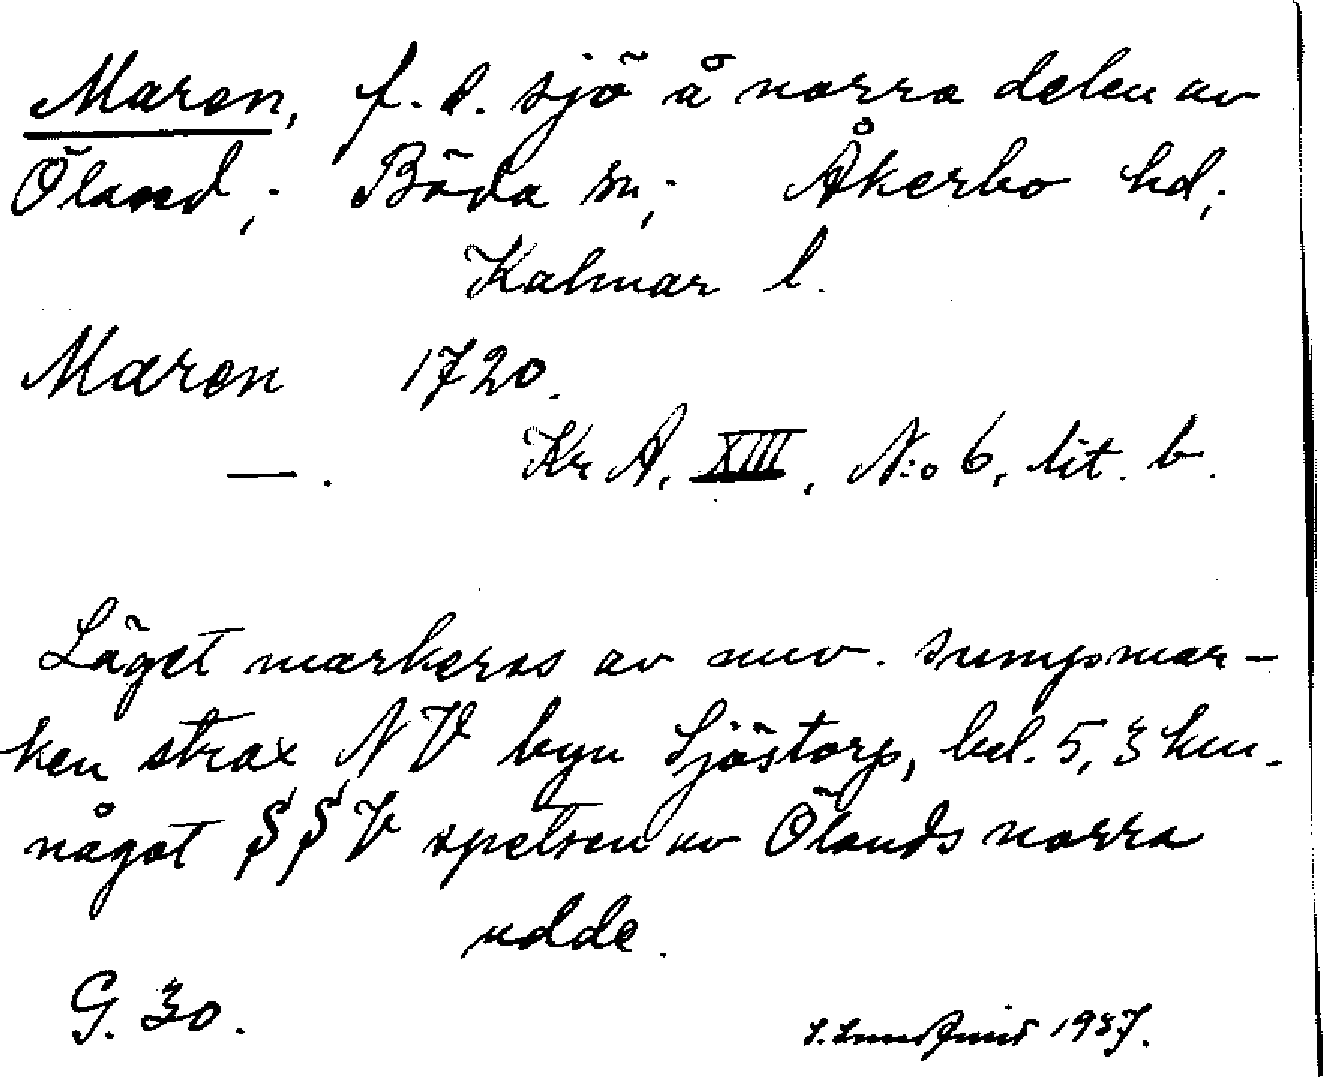 Maren, f. d. sjö å norra delen av
Öland; Böda sn; Åkerbo hd;
Kalmar l.
Maren 1720.
—. Kr A. XIII, N:o 6, lit. b.
Läget markeras av nuv. sumpmar-
ken strax NV byn Sjöstorp, bel. 5,3 km.
något SSV spetsen av Ölands norra
udde.
G. 30.
S. Lundqvist 1937.